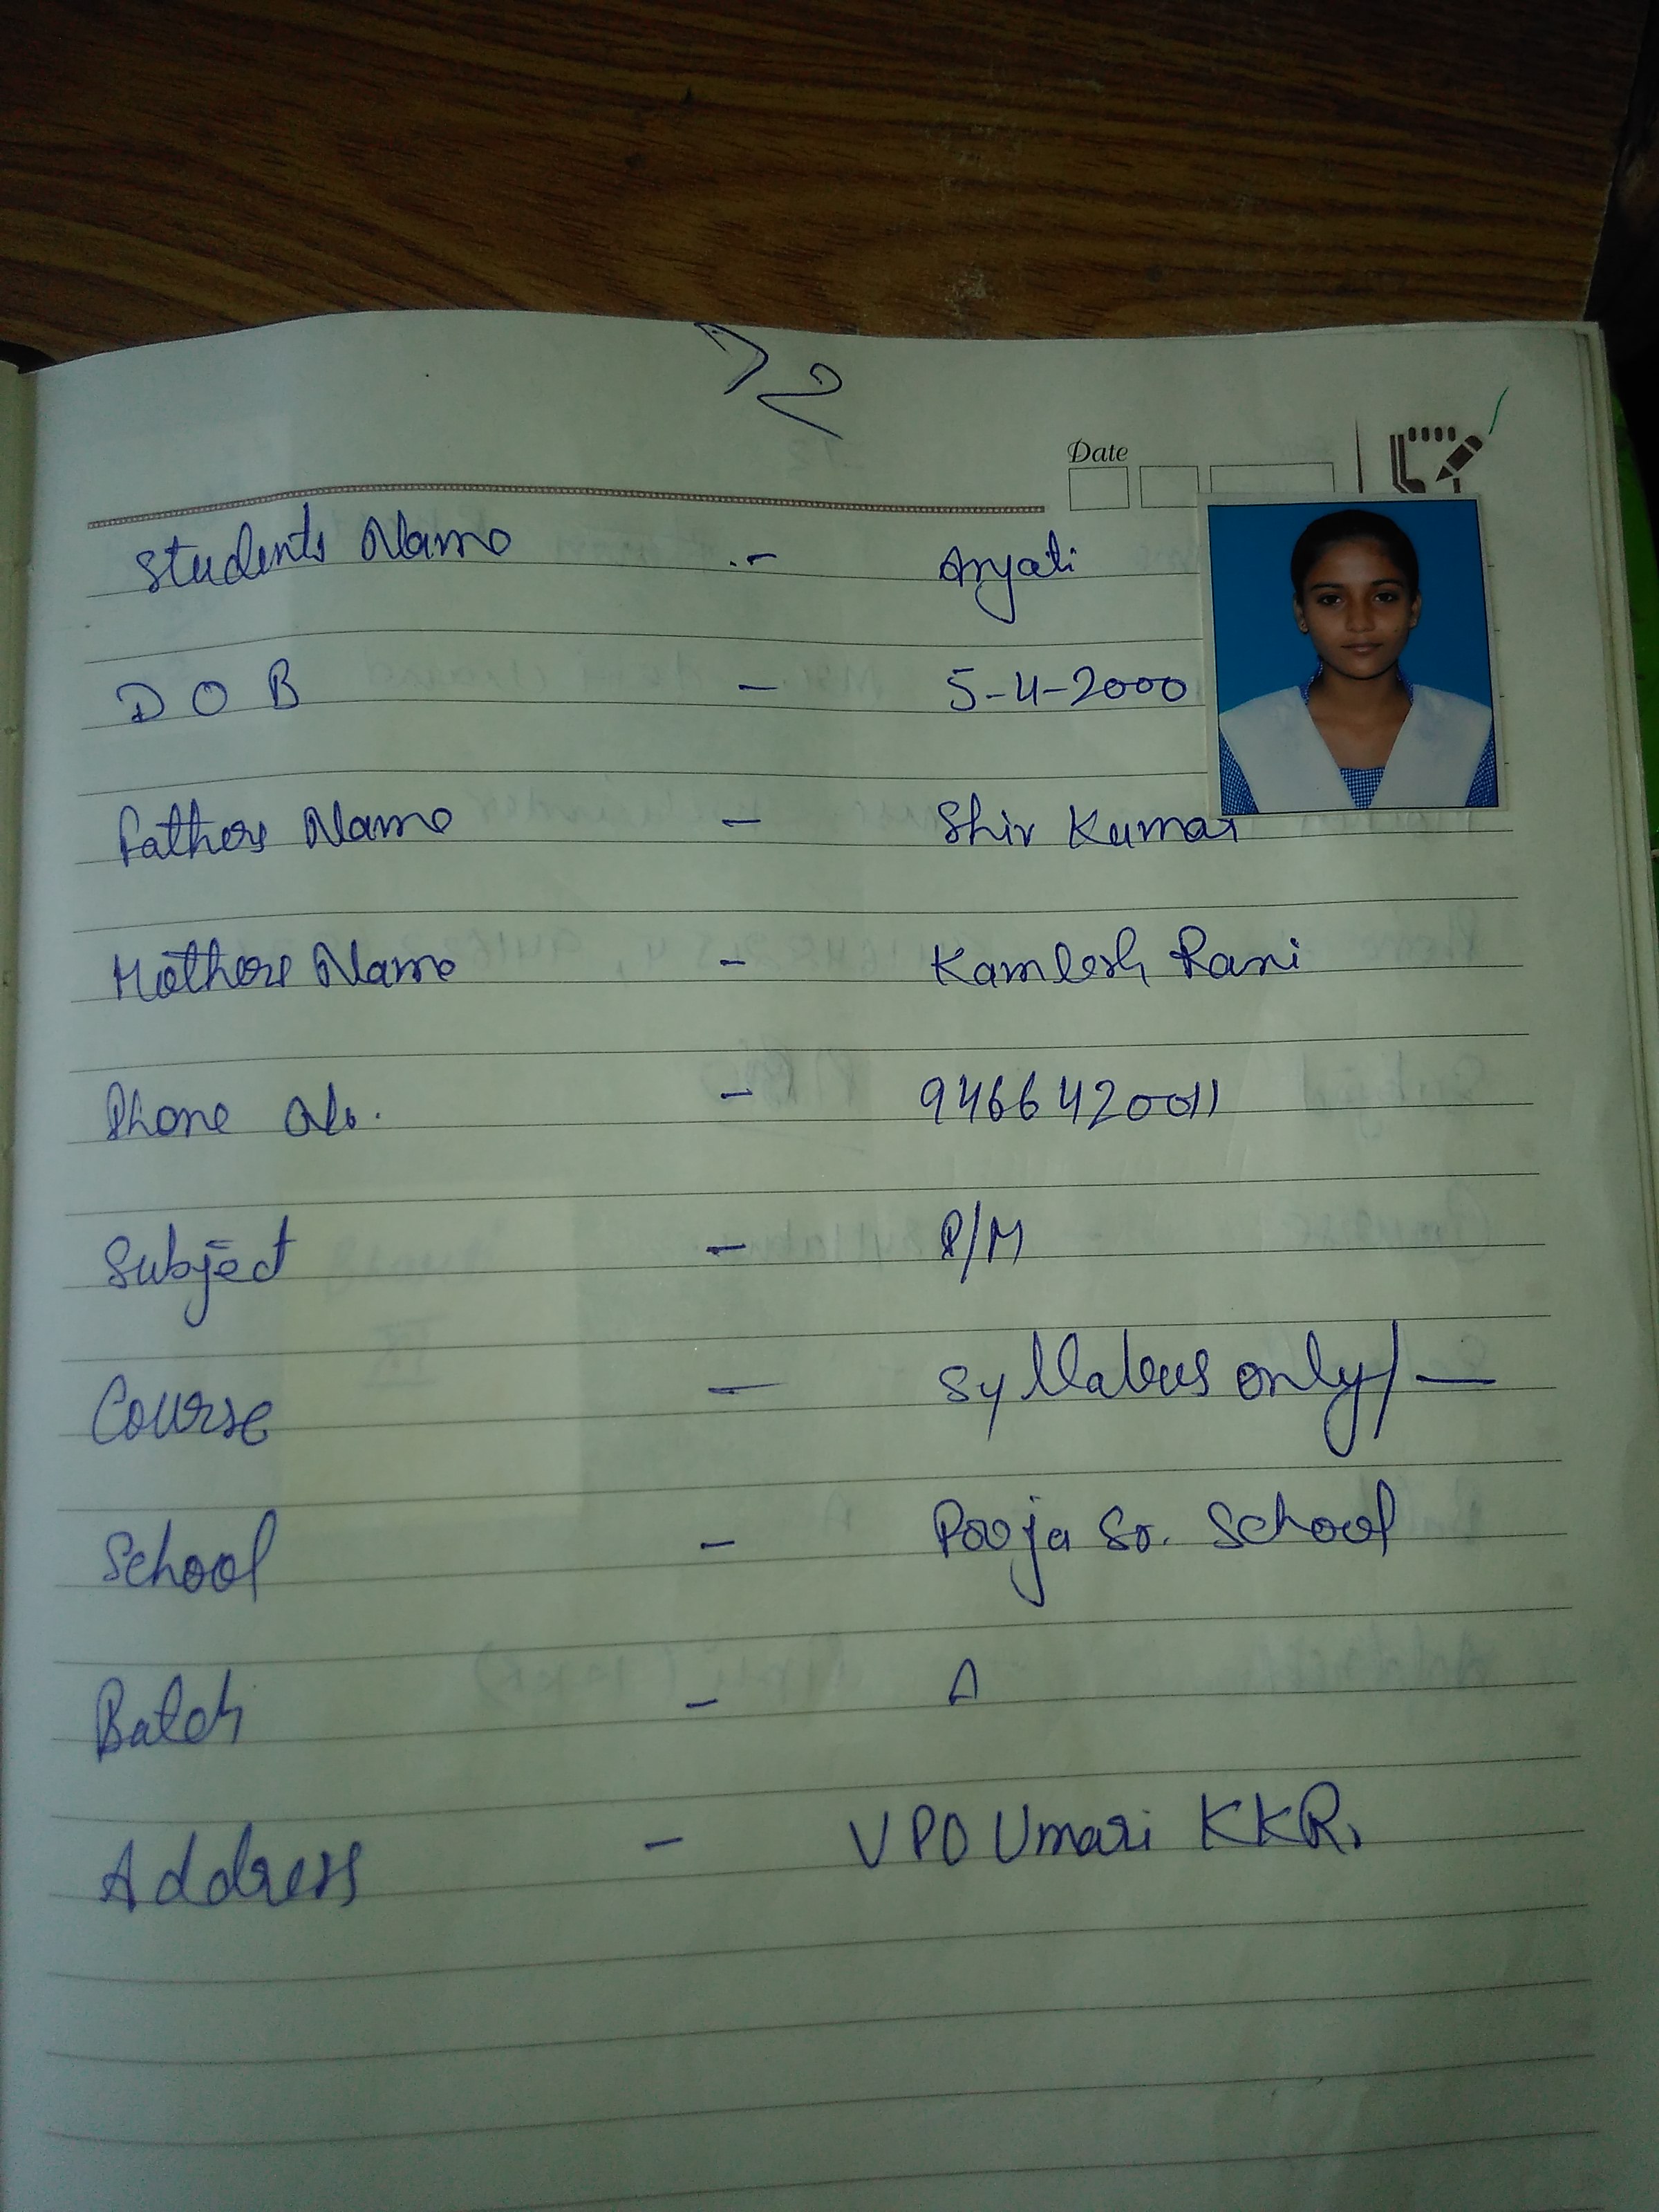 72
Date
Students Name .- Anjali
D O B - 5-4-2000
Fathers Name - Shiv Kumar
Mothers Name - Kamlesh Rani
Phone No. - 9466420011
Subject - P/M
Course - Syllabus only/-
School - Pooja Sr. School
Batch - A
Address - VPO Umari KKR.